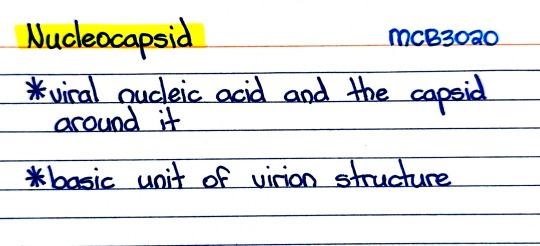 Nucleocapsid MCB3020
*viral nucleic acid and the capsid
around it
*basic unit of virion structure